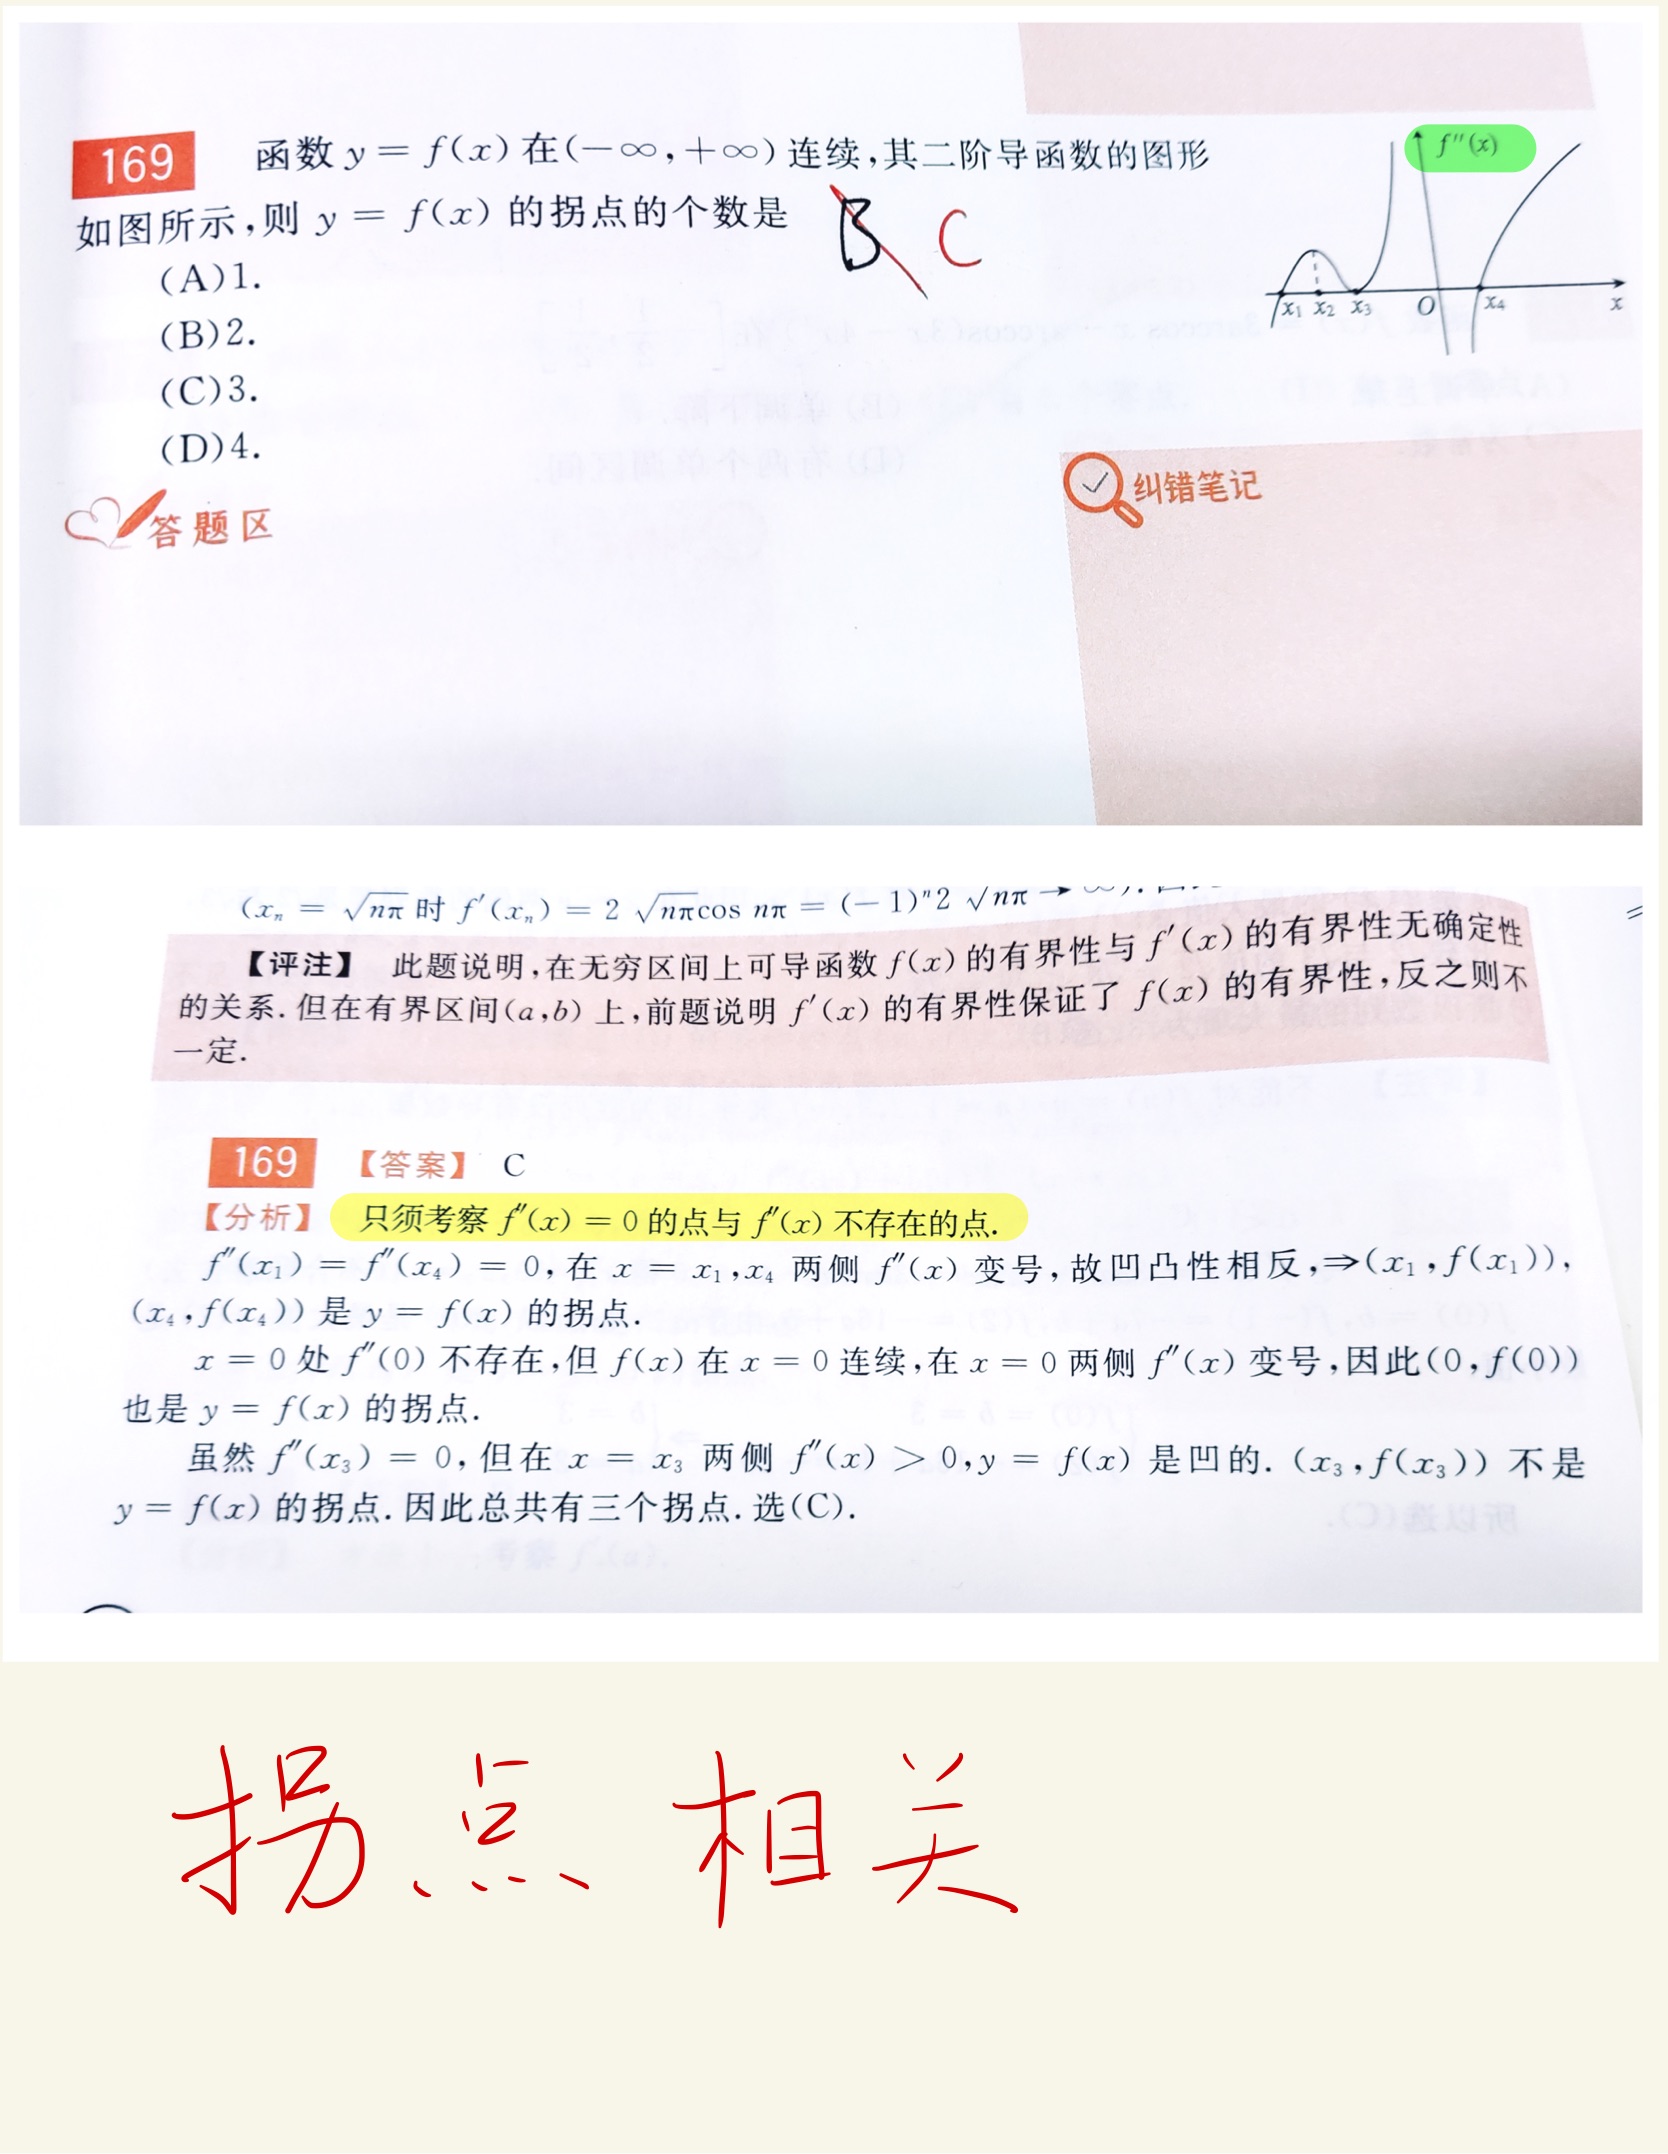 169 函数 y = f(x) 在(-∞,+∞)连续,其二阶导函数的图形
如图所示,则 y = f(x) 的拐点的个数是 B C
(A)1.
(B)2.
(C)3.
(D)4.
f″(x)
x₁ x₂ x₃ O x₄ x
答题区
纠错笔记
(xₙ = √nπ 时 f′(xₙ) = 2 √nπcos nπ = (-1)ⁿ2 √nπ →
【评注】 此题说明,在无穷区间上可导函数 f(x) 的有界性与 f′(x) 的有界性无确定性
的关系.但在有界区间(a,b)上,前题说明 f′(x) 的有界性保证了 f(x) 的有界性,反之则不
一定.
169 【答案】 C
【分析】 只须考察 f″(x) = 0 的点与 f″(x) 不存在的点.
f″(x₁) = f″(x₄) = 0,在 x = x₁,x₄ 两侧 f″(x) 变号,故凹凸性相反,⇒(x₁,f(x₁)),
(x₄,f(x₄)) 是 y = f(x) 的拐点.
x = 0 处 f″(0) 不存在,但 f(x) 在 x = 0 连续,在 x = 0 两侧 f″(x) 变号,因此(0,f(0))
也是 y = f(x) 的拐点.
虽然 f″(x₃) = 0,但在 x = x₃ 两侧 f″(x) > 0,y = f(x) 是凹的.(x₃,f(x₃)) 不是
y = f(x) 的拐点.因此总共有三个拐点.选(C).
拐点相关